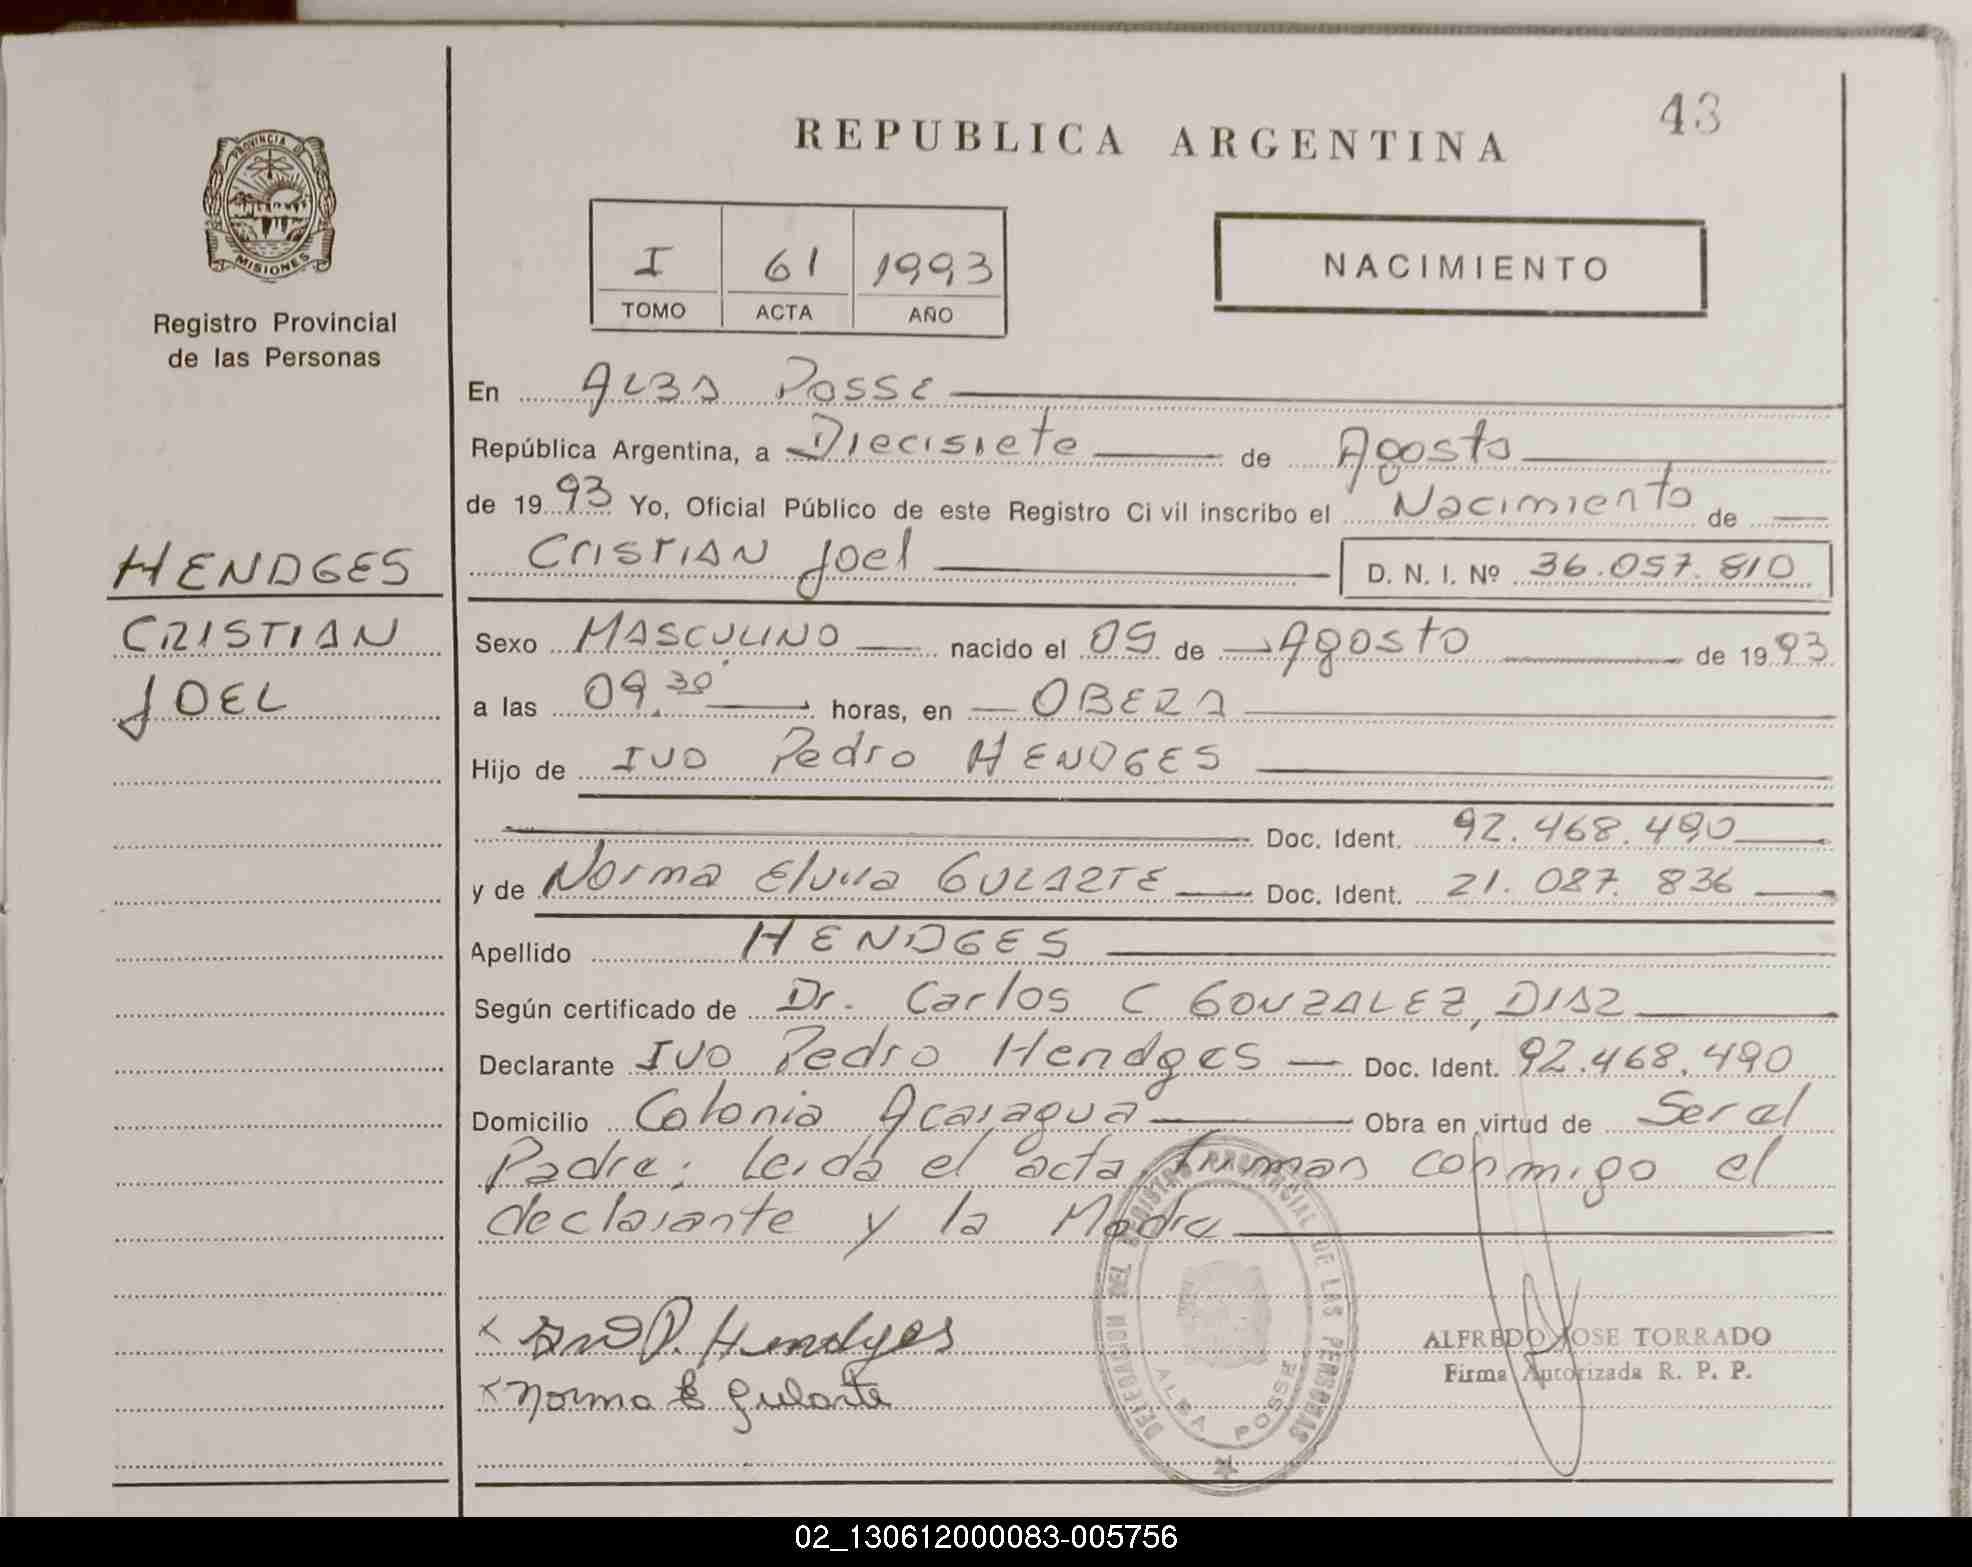 43
REPUBLICA ARGENTINA
PROVINCIA D
MISIONES
Registro Provincial
de las Personas
I 61 1993
TOMO ACTA AÑO
NACIMIENTO
En ALBA POSSE
República Argentina, a Diecisiete de Agosto
de 1993 Yo, Oficial Público de este Registro Civil inscribo el Nacimiento de
Cristian Joel D. N. I. Nº 36.057.810
HENDGES
CRISTIAN
JOEL
Sexo MASCULINO nacido el 05 de Agosto de 1993
a las 09.30 horas, en OBERA
Hijo de IVO Pedro HENDGES
Doc. Ident. 92.468.490
y de Norma Elvira GULARTE Doc. Ident. 21.087.836
Apellido HENDGES
Según certificado de Dr. Carlos C GONZALEZ, DIAZ
Declarante IVO Pedro Hendges Doc. Ident. 92.468.490
Domicilio Colonia Acaragua Obra en virtud de Ser el
Padre; leida el acta firman conmigo el
declarante y la Madre
DELEGACION DEL REGISTRO PROVINCIAL DE LAS PERSONAS
ALBA POSSE
x Ivo P. Hendges
x Norma E Gularte
ALFREDO JOSE TORRADO
Firma Autorizada R. P. P.
02_130612000083-005756